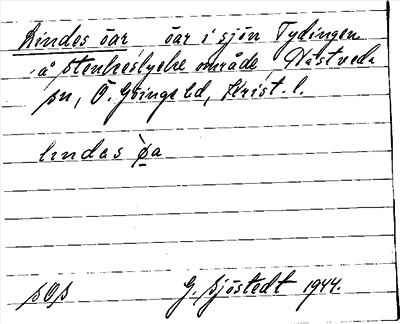 Lindes öar, öar i sjön Tydingen
å Stenkeslycke område, Hästveda
sn, Ö. Göinge hd, Krist. l.
lindas ø̀a
SOS G. Sjöstedt 1944.